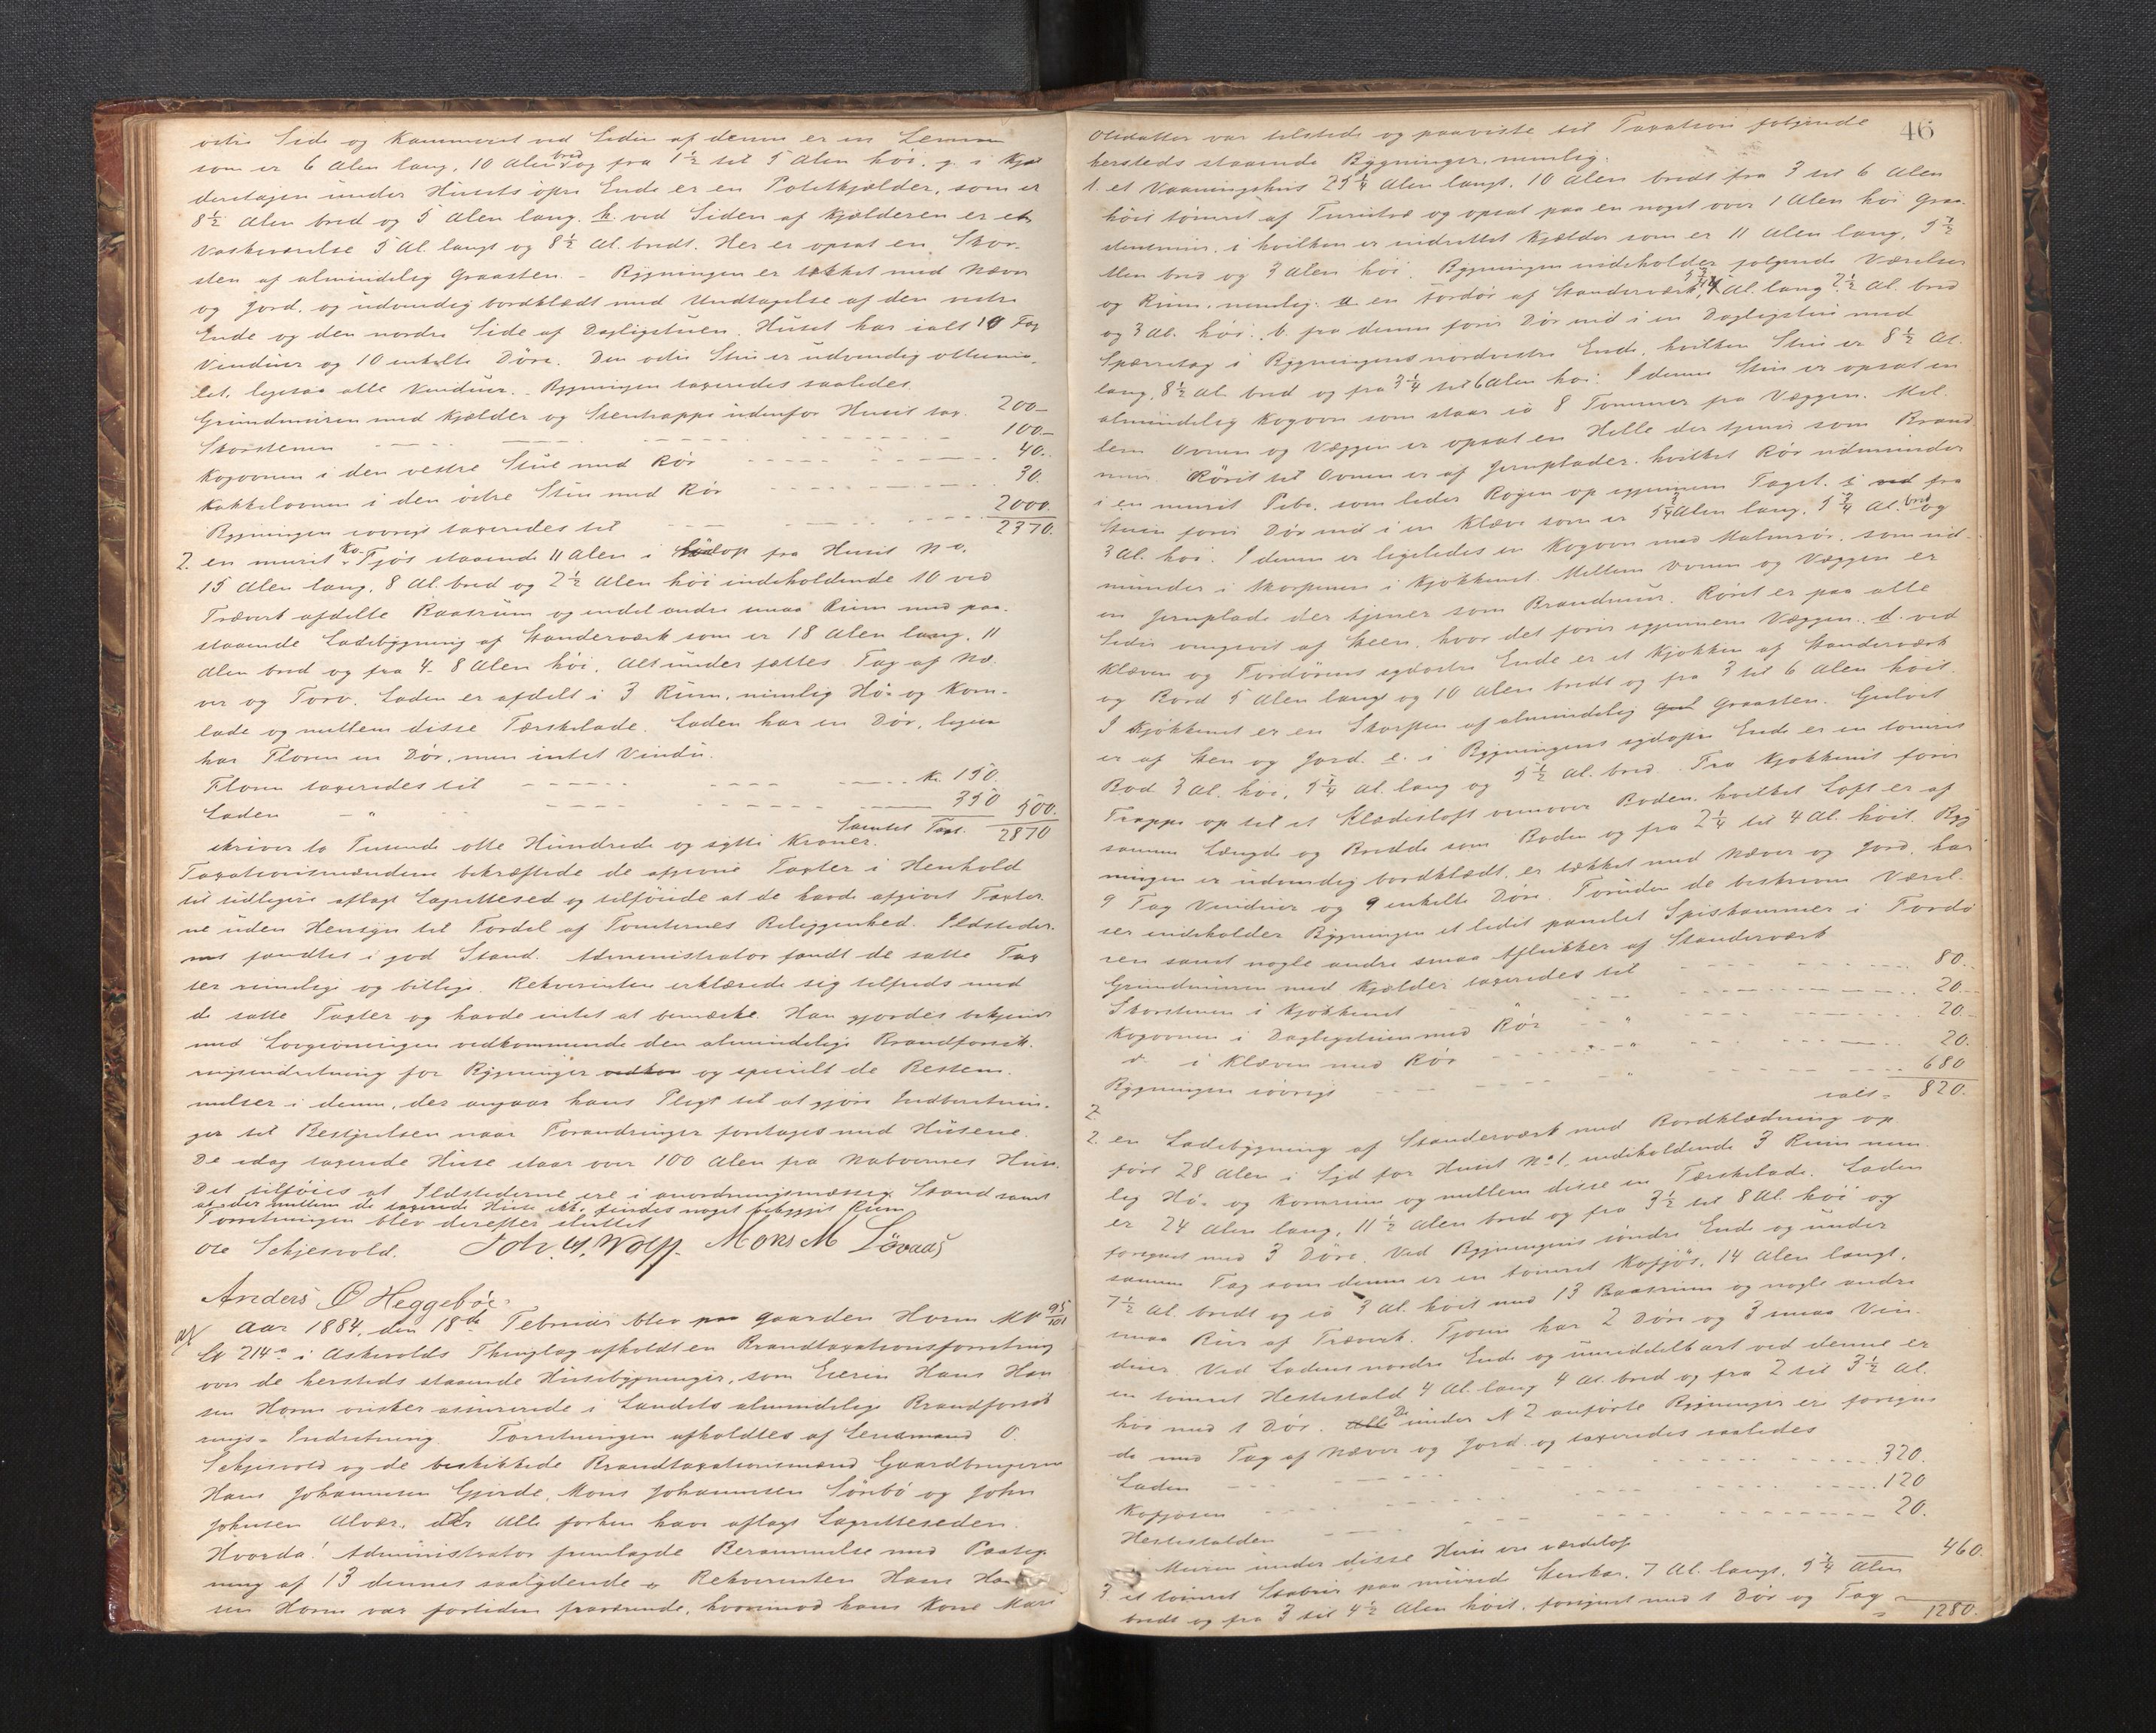 østre Side og Kammeret ved Siden af denne er en Lemm
som er 6 Alen lang, 10 Alen bred og fra 1½ til 5 Alen høi. g. i Kjæl
deretagen under Husets øpre Ende er en Potetkjælder, som er
8½ Alen bred og 5 Alen lang. h. ved Siden af Kjælderen er et
Vaskeværelse 5 Al. langt og 8½ Al. bredt. Her er opsat en Skor-
sten af almindelig Graasten. - Bygningen er tækket med Næver
og Jord, og udvendig bordklædt med Undtagelse af den vestre
Ende og den nordre Side af Dagligstuen. Huset har ialt 10 Fag
Vinduer og 10 enkelte Døre. Den østre Stue er udvendig oliema-
let, ligesaa alle Vinduer. - Bygningen taxeredes saaledes
Grundmuren med Kjælder og Stentrappe udenfor Huset tax. 200-
Skorstenen 100.-
Kogovnen i den vestre Stue med Rør 40.
Kakkelovnen i den østre Stue med Rør 30.
Bygningen iøvrigt taxeredes til 2000.
2370.
2. en muret Ko-Fjøs staaende 11 Alen i fra Huset No.
15 Alen lang, 8 Al. bred og 2½ Alen høi indeholdende 10 ved
Træverk afdelte Baasrum og endel andre smaa Rum med paa-
staaende Ladebygning af Standerværk som er 18 Alen lang, 11
Alen bred og fra 4-8 Alen høi. Alt under fælles Tag af Næ-
ver og Torv. Laden er afdelt i 3 Rum, nemlig Hø- og Korn-
lade og mellem disse Tærskelade. Laden har en Dør, ligesaa
har Floren en Dør, men intet Vindu.
Floren taxeredes til Kr. 150.
Laden - " - 350 500.
Samlet Taxt. 2870
skriver to Tusende otte Hundrede og sytti Kroner.
Taxationsmændene bekræftede de afgivne Taxter i Henhold
til tidligere aflagt Lagrettesed og tilføiede at de havde afgivet Taxter
ne uden Hensyn til Fordel af Tomternes Beliggenhed. Ildsteder-
nes fandtes i god Stand. Administrator fandt de satte Tax
ter rimelige og billige. Rekvirenten erklærede sig tilfreds med
de satte Taxter og havde intet at bemærke. Han gjordes bekjendt
med Lovgivningen vedkommende den almindelige Brandforsik-
ringsindretning for Bygninger og specielt de Bestem-
melser i denne, der angaar hans Pligt til at gjøre Indberetnin-
ger til Bestyrelsen naar Forandringer foretages med Husene.
De idag taxerede Huse staar over 100 Alen fra Naboernes Huse.
Det tilføies at Ildstederne ere i anordningsmæssig Stand samt
at der mellem de taxerede Huse ikke findes noget bebygget Rum
Forretningen blev derefter sluttet
Ole Schjesvold. Joh. Wolff. Mons M Løvaas
Anders O Heggebøe.
Aar 1884, den 18de Februar blev gaarden Horm M N 95/101
L 214a i Askvolds Thinglag afholdt en Brandtaxationsforretning
over de hersteds staaende Husebygninger, som Eieren Hans Han
sen Horm ønsker assurerede i Landets almindelige Brandforsik
rings-Indretning. Forretningen afholdtes af Lensmand O.
Schjesvold og de beskikkede Brandtaxationsmænd Gaardbrugerne
Hans Johannesen Gjerde, Mons Johannesen Sørbø og John
Johnsen Alvær, der Alle forhen have aflagt Lagretteseden.
Hvorda! Administrator fremlagde Berammelse med Paateg
ning af 13 dennes saalydende - Rekvirenten Hans Han
sen Horm var fortiden fraværende, hvorimod hans Kone Mari
46
Olsdatter var tilstede og paaviste til Taxation følgende
hersteds staaende Bygninger, nemlig:
1. et Vaaningshus 25¼ Alen langt, 10 Alen bredt fra 3 til 6 Alen
høit tømret af Furutræ og opsat paa en noget over 1 Alen høi Graa-
stensmur, i hvilken er indrettet Kjælder som er 11 Alen lang, 5½
Alen bred og 3 Alen høi. Bygningen indeholder følgende Værelser
og Rum, nemlig: a en Fordør af Standerværk, Al. lang 2½ Al. bred
og 3 Al. høi. b. fra denne fører Dør ind i en Dagligstue med
Spærretag i Bygningens nordvestre Ende, hvilken Stue er 8½ Al.
lang, 8½ Al. bred og fra 3¼ til 6 Alen høi. I denne Stue er opsat en
almindelig Kogovn som staar ca 8 Tommer fra Væggen. Mel-
lem Ovnen og Væggen er opsat en Helle der tjener som Brand
mur. Røret til Ovnen er af Jernplader, hvilket Rør udmunder
i en muret Pibe, som leder Røgen op igjennem Taget. fra
Stuen fører Dør ind i en Kleve som er 5¾ Alen lang, 5¾ Al. bred og
3 Al. høi. I denne er ligeledes en Kogovn med Malmrør, som ud-
munder i Skorstenen i Kjøkkenet. Mellem Ovnen og Væggen er
en Jernplade der tjener som Brandmur. Røret er paa alle
Sider omgivet af Steen, hvor det fører igjennem Væggen. d. ved
Kleven og Fordørens sydøstre Ende er et Kjøkken af Standerværk
og Bord 5 Alen langt og 10 Alen bredt og fra 3 til 6 Alen høit.
I Kjøkkenet er en Skorsten af almindelig Graasten. Gulvet
er af Sten og Jord. e. i Bygningens sydøstre Ende er en tømret
Bod 3 Al. høi, 5¼ Al. lang og 5½ Al. bred. Fra Kjøkkenet fører
Trappe op til et Klædesloft ovenover Boden, hvilket Loft er af
samme Længde og Bredde som Boden og fra 2¼ til 4 Al. høit. Byg
ningen er udvendig bordklædt, er tækket med Næver og Jord, har
9 Fag Vinduer og 9 enkelte Døre. Foruden de beskrevne Værel-
ser indeholder Bygningen et lidet panelet Spiskammer i Fordø
ren samt nogle andre smaa Aflukker af Standerværk
Grundmuren med Kjælder taxeredes til 80.
Skorstenen i Kjøkkenet " 20.
Kogovnen i Dagligstuen med Rør " 20.
d. i Kleven med Rør " 20.
Bygningen iøvrigt " 680
ialt - 820.
2.
2. en Ladebygning af Standerværk med Bordklædning op
ført 28 Alen i Syd for Huset No 1, indeholdende 3 Rum nem-
lig Hø- og Kornrum og mellem disse en Tærskelade. Laden
er 24 Alen lang, 11½ Alen bred og fra 3½ til 8 Al. høi og
forsynet med 3 Døre. Ved Bygningens søndre Ende og under
samme Tag som denne er en tømret Kofjøs, 14 Alen langt,
7½ Al. bredt og ca 3 Al. høit med 13 Baasrum og nogle andre
smaa Rum af Træverk. Fjosen har 2 Døre og 3 smaa Vin-
duer. Ved Ladens nordre Ende og umiddelbart ved denne er
en tømret Hestestald 4 Al. lang 4 Al. bred og fra 2 til 3½ Al.
høi med 1 Dør. De under N 2 anførte Bygninger er forsyne
de med Tag af Næver og Jord og taxeredes saaledes
Laden 320.
Kofjosen 120
Hestestalden 20.
Muren under disse Huse ere værdeløs 460.
3 et tømret Stabur paa murede Stenkar, 7 Al. langt, 5¼ Alen
bredt og fra 3 til 4½ Alen høit, forsynet med 1 Dør og Tag
1280.